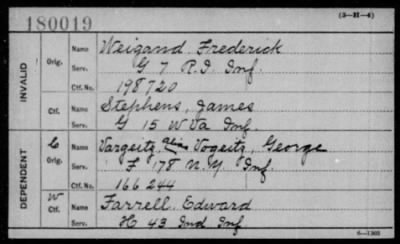 180019 (3—H—4)
INVALID Orig. Name Weigand Frederick
Serv. G 7 R.I. Inf.
Ctf. No. 198720
Ctf. Name Stephens, James
Serv. G 15 W Va Inf.
DEPENDENT C Orig. Name Vargeitz, Alias Vogeitz, George
Serv. F 178 N.Y. Inf.
Ctf. No. 166244
W Ctf. Name Farrell, Edward
Serv. H 43 Ind Inf
6—1303